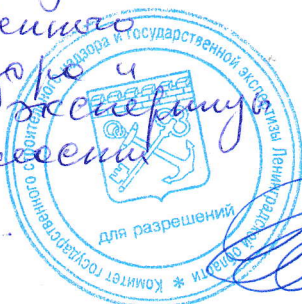 надзора и
экспертизы
Комитет государственного строительного надзора и государственной экспертизы Ленинградской области *
для разрешений